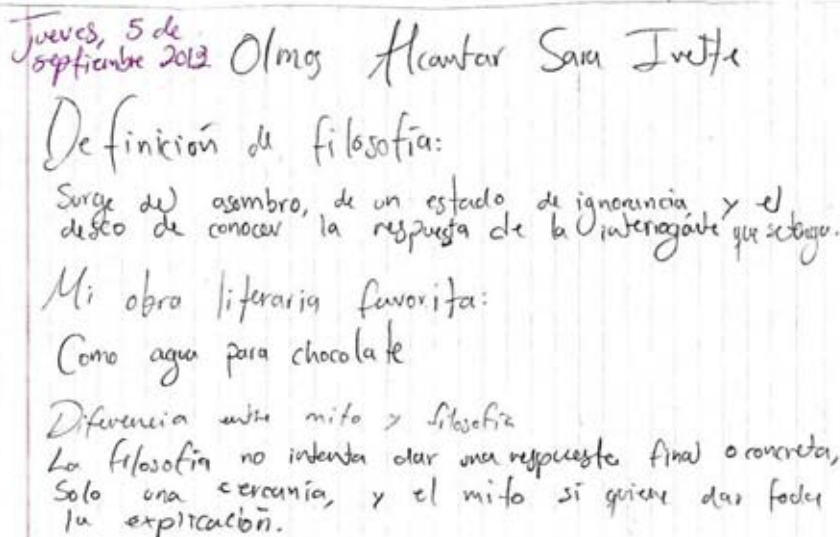 Jueves, 5 de
septiembre 2013
Olmos Alcantar Sara Ivette
Definición de filosofía:
Surge del asombro, de un estado de ignorancia y el
deseo de conocer la respuesta de la interrogante que se tenga.
Mi obra literaria favorita:
Como agua para chocolate
Diferencia entre mito y filosofía
La filosofía no intenta dar una respuesta final o concreta,
Solo una cercanía, y el mito sí quiere dar toda
la explicación.